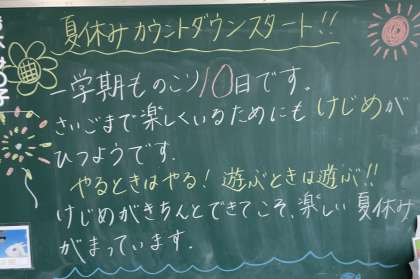 夏休みカウントダウンスタート!!
一学期ものこり10日です。
さいごまで楽しくいるためにも けじめが
ひつようです.
やるときはやる! 遊ぶときは遊ぶ!!
けじめがきちんとできてこそ、楽しい 夏休み
がまっています.